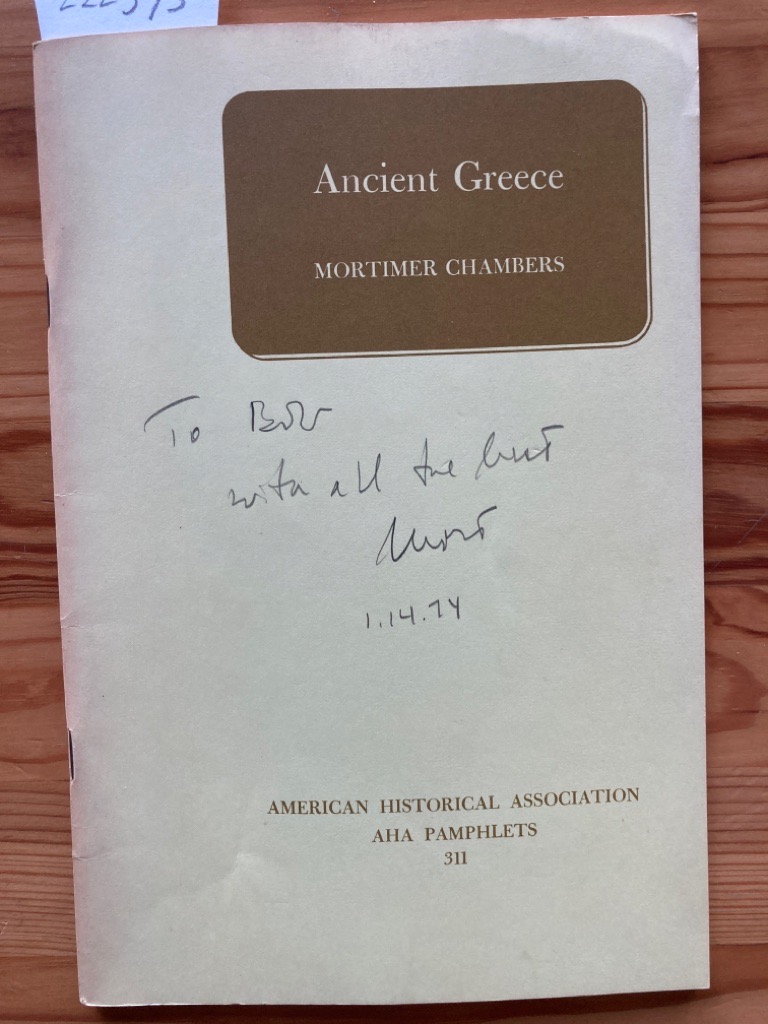 Ancient Greece
MORTIMER CHAMBERS
To Bob
with all the best
Mort
1.14.74
AMERICAN HISTORICAL ASSOCIATION
AHA PAMPHLETS
311